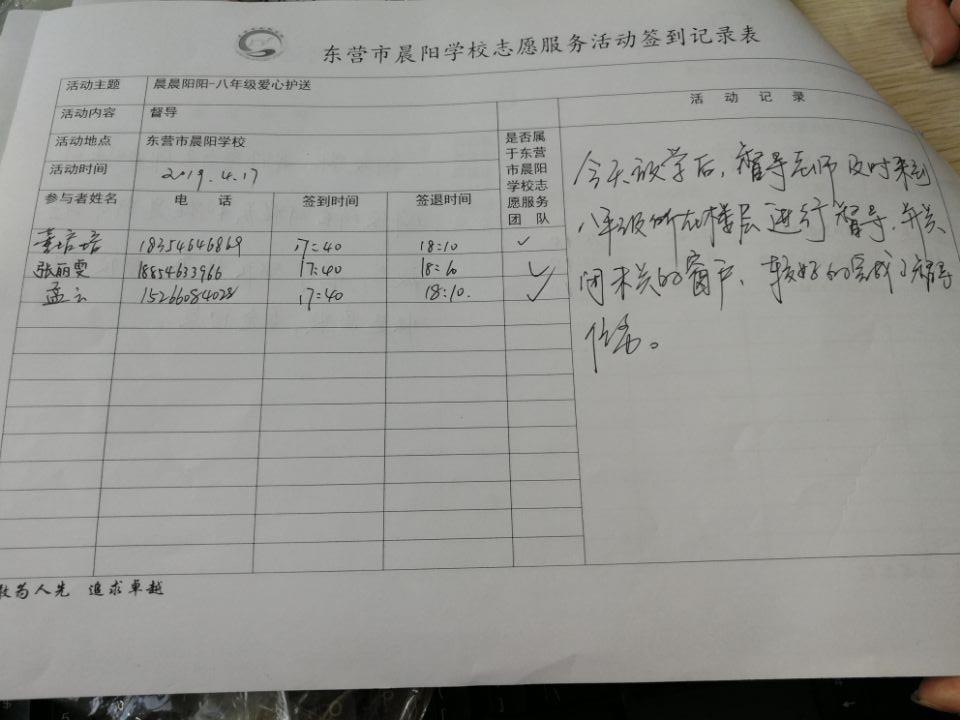 东营市晨阳学校志愿服务活动签到记录表
活动主题 晨晨阳阳-八年级爱心护送
活动内容 督导
活动地点 东营市晨阳学校
活动时间 2019.4.17
参与者姓名 电 话 签到时间 签退时间
是否属
于东营
市晨阳
学校志
愿服务
团 队
培培 18354646869 17:40 18:10 ✓
张丽雯 18854633966 17:40 18:10 ✓
孟云 15266084028 17:40 18:10. ✓
活 动 记 录
今天放学后,督导老师及时来到
八年级所在楼层进行督导,并关
闭未关的窗户,较好的完成了督导
任务。
敢为人先 追求卓越